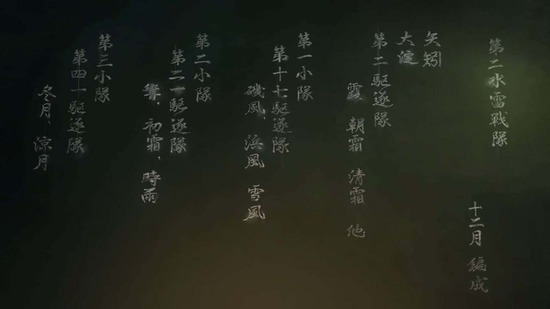 第二水雷戦隊
十二月 編成
矢矧
大淀
第二駆逐隊
霞 朝霜 清霜 他
第一小隊
第十七駆逐隊
磯風、浜風 雪風
第二小隊
第二一駆逐隊
響、初霜、時雨
第三小隊
第四一駆逐隊
冬月、涼月